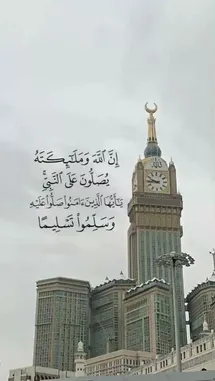 إِنَّ ٱللَّهَ وَمَلَٰٓئِكَتَهُۥ
يُصَلُّونَ عَلَى ٱلنَّبِيِّۚ
يَٰٓأَيُّهَا ٱلَّذِينَ ءَامَنُوا۟ صَلُّوا۟ عَلَيْهِ
وَسَلِّمُوا۟ تَسْلِيمًا